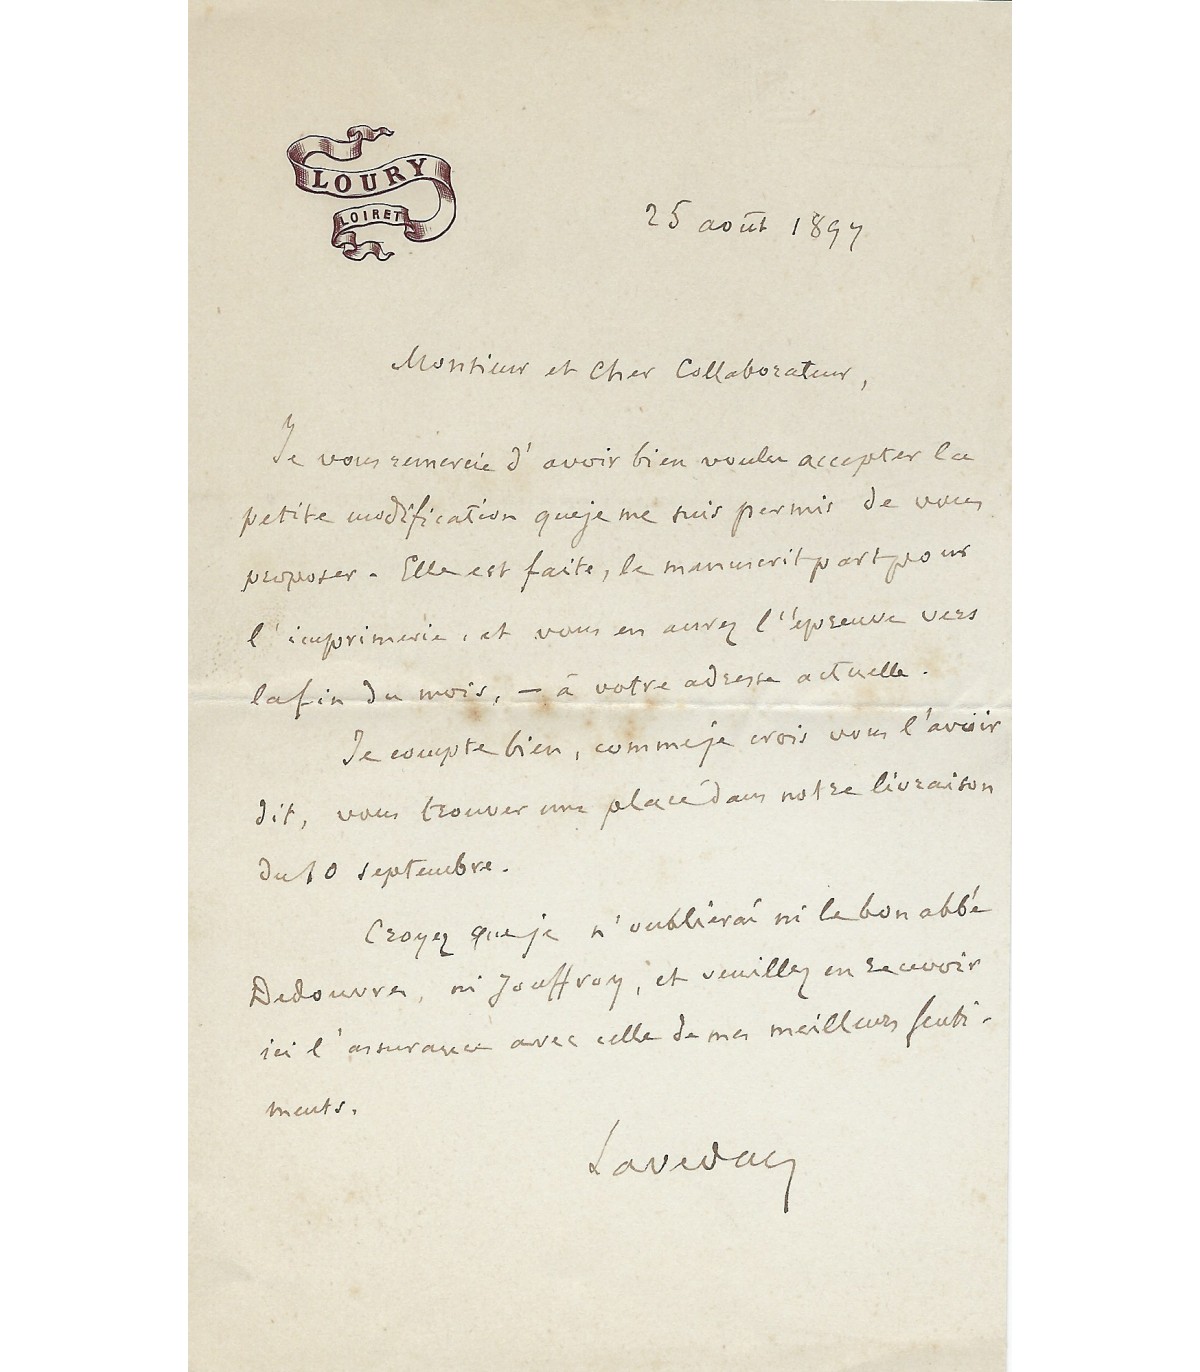 LOURY
LOIRET
25 août 1897
Monsieur et Cher Collaborateur,
Je vous remercie d'avoir bien voulu accepter la
petite modification que je me suis permis de vous
proposer. Elle est faite, le manuscrit part pour
l'imprimerie, et vous en aurez l'épreuve vers
la fin du mois, – à votre adresse actuelle.
Je compte bien, comme je crois vous l'avoir
dit, vous trouver une place dans notre livraison
du 10 septembre.
Croyez que je n'oublierai ni le bon abbé
Dedouvres, ni Jouffroy, et veuillez en recevoir
ici l'assurance avec celle de mes meilleurs senti-
ments.
Lavedan